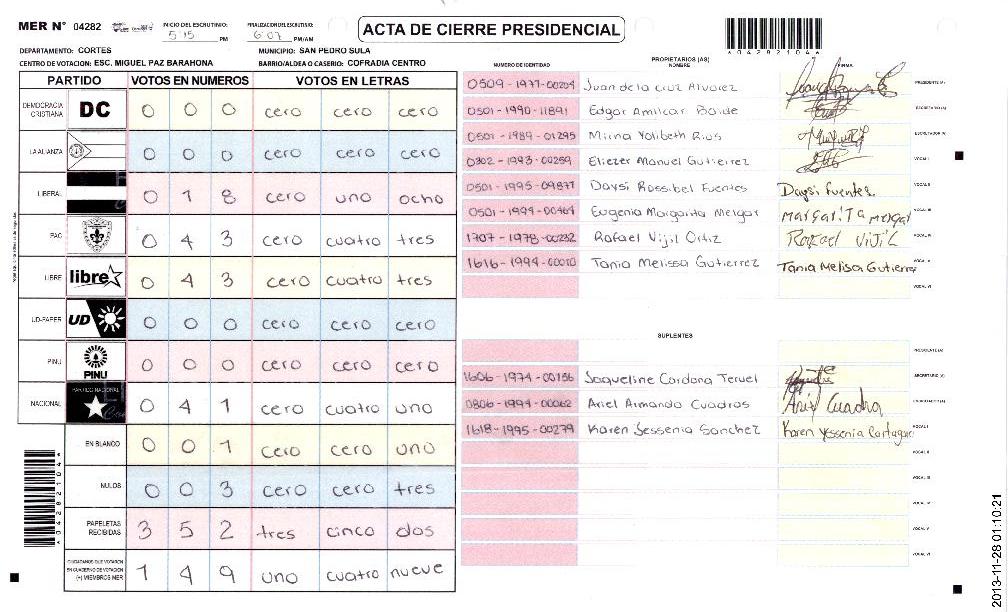 MER N° 04282
INICIO DEL ESCRUTINIO: 5:15 PM
FINALIZACION DEL ESCRUTINIO: 6:07 PM/AM
ACTA DE CIERRE PRESIDENCIAL
*04282104*
DEPARTAMENTO: CORTES
MUNICIPIO: SAN PEDRO SULA
CENTRO DE VOTACION: ESC. MIGUEL PAZ BARAHONA
BARRIO/ALDEA O CASERIO: COFRADIA CENTRO
PARTIDO VOTOS EN NUMEROS VOTOS EN LETRAS
DEMOCRACIA CRISTIANA DC 0 0 0 cero cero cero
LA ALIANZA 0 0 0 cero cero cero
LIBERAL 0 1 8 cero uno ocho
PAC 0 4 3 cero cuatro tres
LIBRE libre 0 4 3 cero cuatro tres
UD-FAPER UD 0 0 0 cero cero cero
PINU PINU 0 0 0 cero cero cero
NACIONAL PARTIDO NACIONAL 0 4 1 cero cuatro uno
EN BLANCO 0 0 1 cero cero uno
NULOS 0 0 3 cero cero tres
PAPELETAS RECIBIDAS 3 5 2 tres cinco dos
CIUDADANOS QUE VOTARON EN CUADERNO DE VOTACION (+) MIEMBROS MER 1 4 9 uno cuatro nueve
*04282104*
PROPIETARIOS (AS)
NUMERO DE IDENTIDAD NOMBRE FIRMA
0509-1977-00204 Juan de la Cruz Alvarez PRESIDENTE (A)
0501-1990-11891 Edgar Amilcar Baide SECRETARIO (A)
0501-1989-01295 Mirna Yolibeth Rius ESCRUTADOR (A)
0302-1993-00259 Eliezer Manuel Gutierrez VOCAL I
0501-1995-09877 Daysi Rossibel Fuentes Daysi Fuentes. VOCAL II
0501-1994-00464 Eugenia Margarita Melgar Margarita Melgar VOCAL III
1707-1978-00232 Rafael Vijil Ortiz Rafael Vijil VOCAL IV
1616-1994-00010 Tania Melissa Gutierrez Tania Melisa Gutierrez VOCAL V
VOCAL VI
SUPLENTES
PRESIDENTE (A)
1606-1974-00156 Jaqueline Cardona Teruel SECRETARIO (A)
0806-1994-00062 Ariel Armando Cuadros Ariel Cuadra ESCRUTADOR (A)
1618-1995-00279 Karen Jessenia Sanchez Karen Yessenia VOCAL I
VOCAL II
VOCAL III
VOCAL IV
VOCAL V
VOCAL VI
2013-11-28 01:10:21